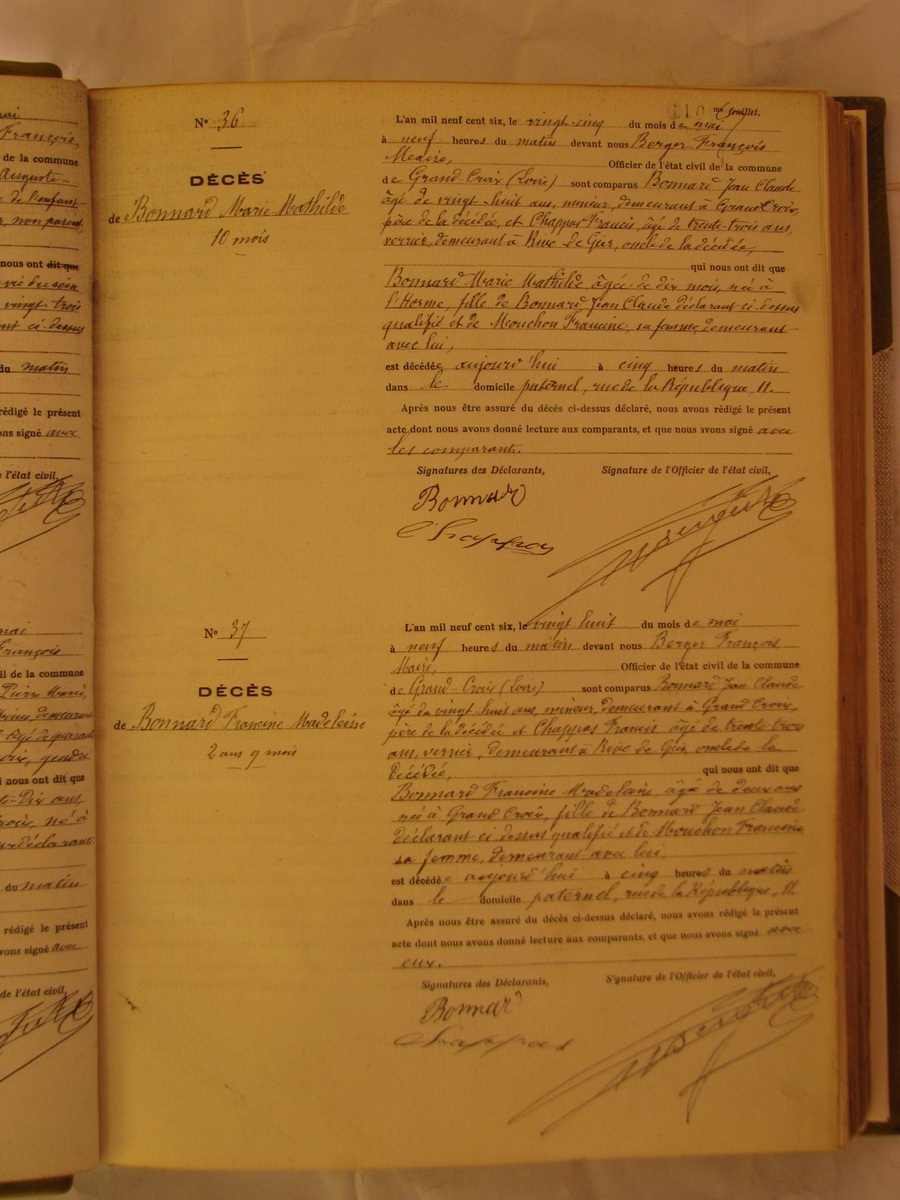 mai
François
de la commune
Auguste
de l'enfant
non parent
nous ont dit que
vingt-trois
ci-dessus
du matin
rédigé le présent
ons signé avec
e l'état civil,
mai
François
il de la commune
nous ont dit que
du matin
rédigé le présent
vons signé avec
de l'état civil,
me feuillet.
N° 36
DÉCÈS
de Bonnard Marie-Mathilde
10 mois
L'an mil neuf cent six, le vingt-cinq du mois de mai
à neuf heures du matin devant nous Berger François
Maire, Officier de l'état civil de la commune
de Grand Croix (Loire) sont comparus Bonnard Jean Claude
âgé de vingt-huit ans, mineur, demeurant à Grand Croix,
père de la décédée, et Chappas Francis, âgé de trente-trois ans,
verrier, demeurant à Rive de Gier, oncle de la décédée,
qui nous ont dit que
Bonnard Marie Mathilde âgée de dix mois, née à
l'Horme, fille de Bonnard Jean Claude déclarant ci-dessus
qualifié et de Mouchon Francine, sa femme, demeurant
avec lui,
est décédée aujourd'hui à cinq heures du matin
dans le domicile paternel, rue de la République, 11.
Après nous être assuré du décès ci-dessus déclaré, nous avons rédigé le présent
acte dont nous avons donné lecture aux comparants, et que nous avons signé avec
les comparants.
Signatures des Déclarants,
Signature de l'Officier de l'état civil,
Bonnard
Chappas
N° 37
DÉCÈS
de Bonnard Francine Madeleine
2 ans 9 mois
L'an mil neuf cent six, le vingt huit du mois de mai
à neuf heures du matin devant nous Berger François
Maire, Officier de l'état civil de la commune
de Grand-Croix (Loire) sont comparus Bonnard Jean Claude
âgé de vingt huit ans, mineur, demeurant à Grand Croix,
père de la décédée et Chappas Francis âgé de trente trois
ans, verrier, demeurant à Rive de Gier, oncle de la
décédée, qui nous ont dit que
Bonnard Francine Madeleine, âgée de deux ans
née à Grand Croix, fille de Bonnard Jean Claude
déclarant ci dessus qualifié et de Mouchon Francine
sa femme, demeurant avec lui.
est décédée aujourd'hui à cinq heures du matin
dans le domicile paternel, rue de la République, 11.
Après nous être assuré du décès ci-dessus déclaré, nous avons rédigé le présent
acte dont nous avons donné lecture aux comparants, et que nous avons signé avec
eux.
Signatures des Déclarants,
Signature de l'Officier de l'état civil,
Bonnard
Chappas